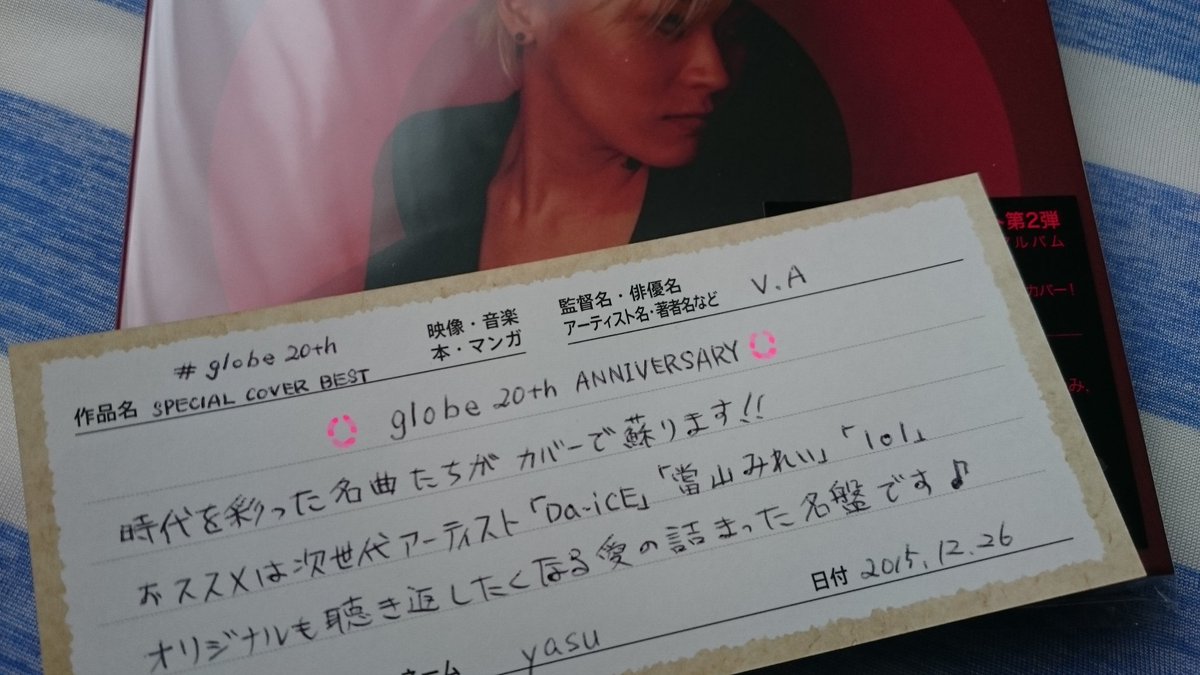 第2弾
ルバム
カバー!
み、
# globe 20th
作品名 SPECIAL COVER BEST
映像・音楽
本・マンガ
監督名・俳優名
アーティスト名・著者名など
V.A
globe 20th ANNIVERSARY
時代を彩った名曲たちがカバーで蘇ります!!
おススメは次世代アーティスト「Da-iCE」「當山みれい」「lol」
オリジナルも聴き返したくなる愛の詰まった名盤です♪
日付 2015.12.26
ーム yasu